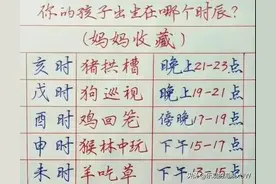 你的孩子出生在哪个时辰?
(妈妈收藏)
亥时 猪拱槽 晚上21-23点
戌时 狗巡视 晚上19-21点
酉时 鸡回笼 傍晚17-19点
申时 猴林中玩 下午15-17点
未时 羊吃草 下午13-15点